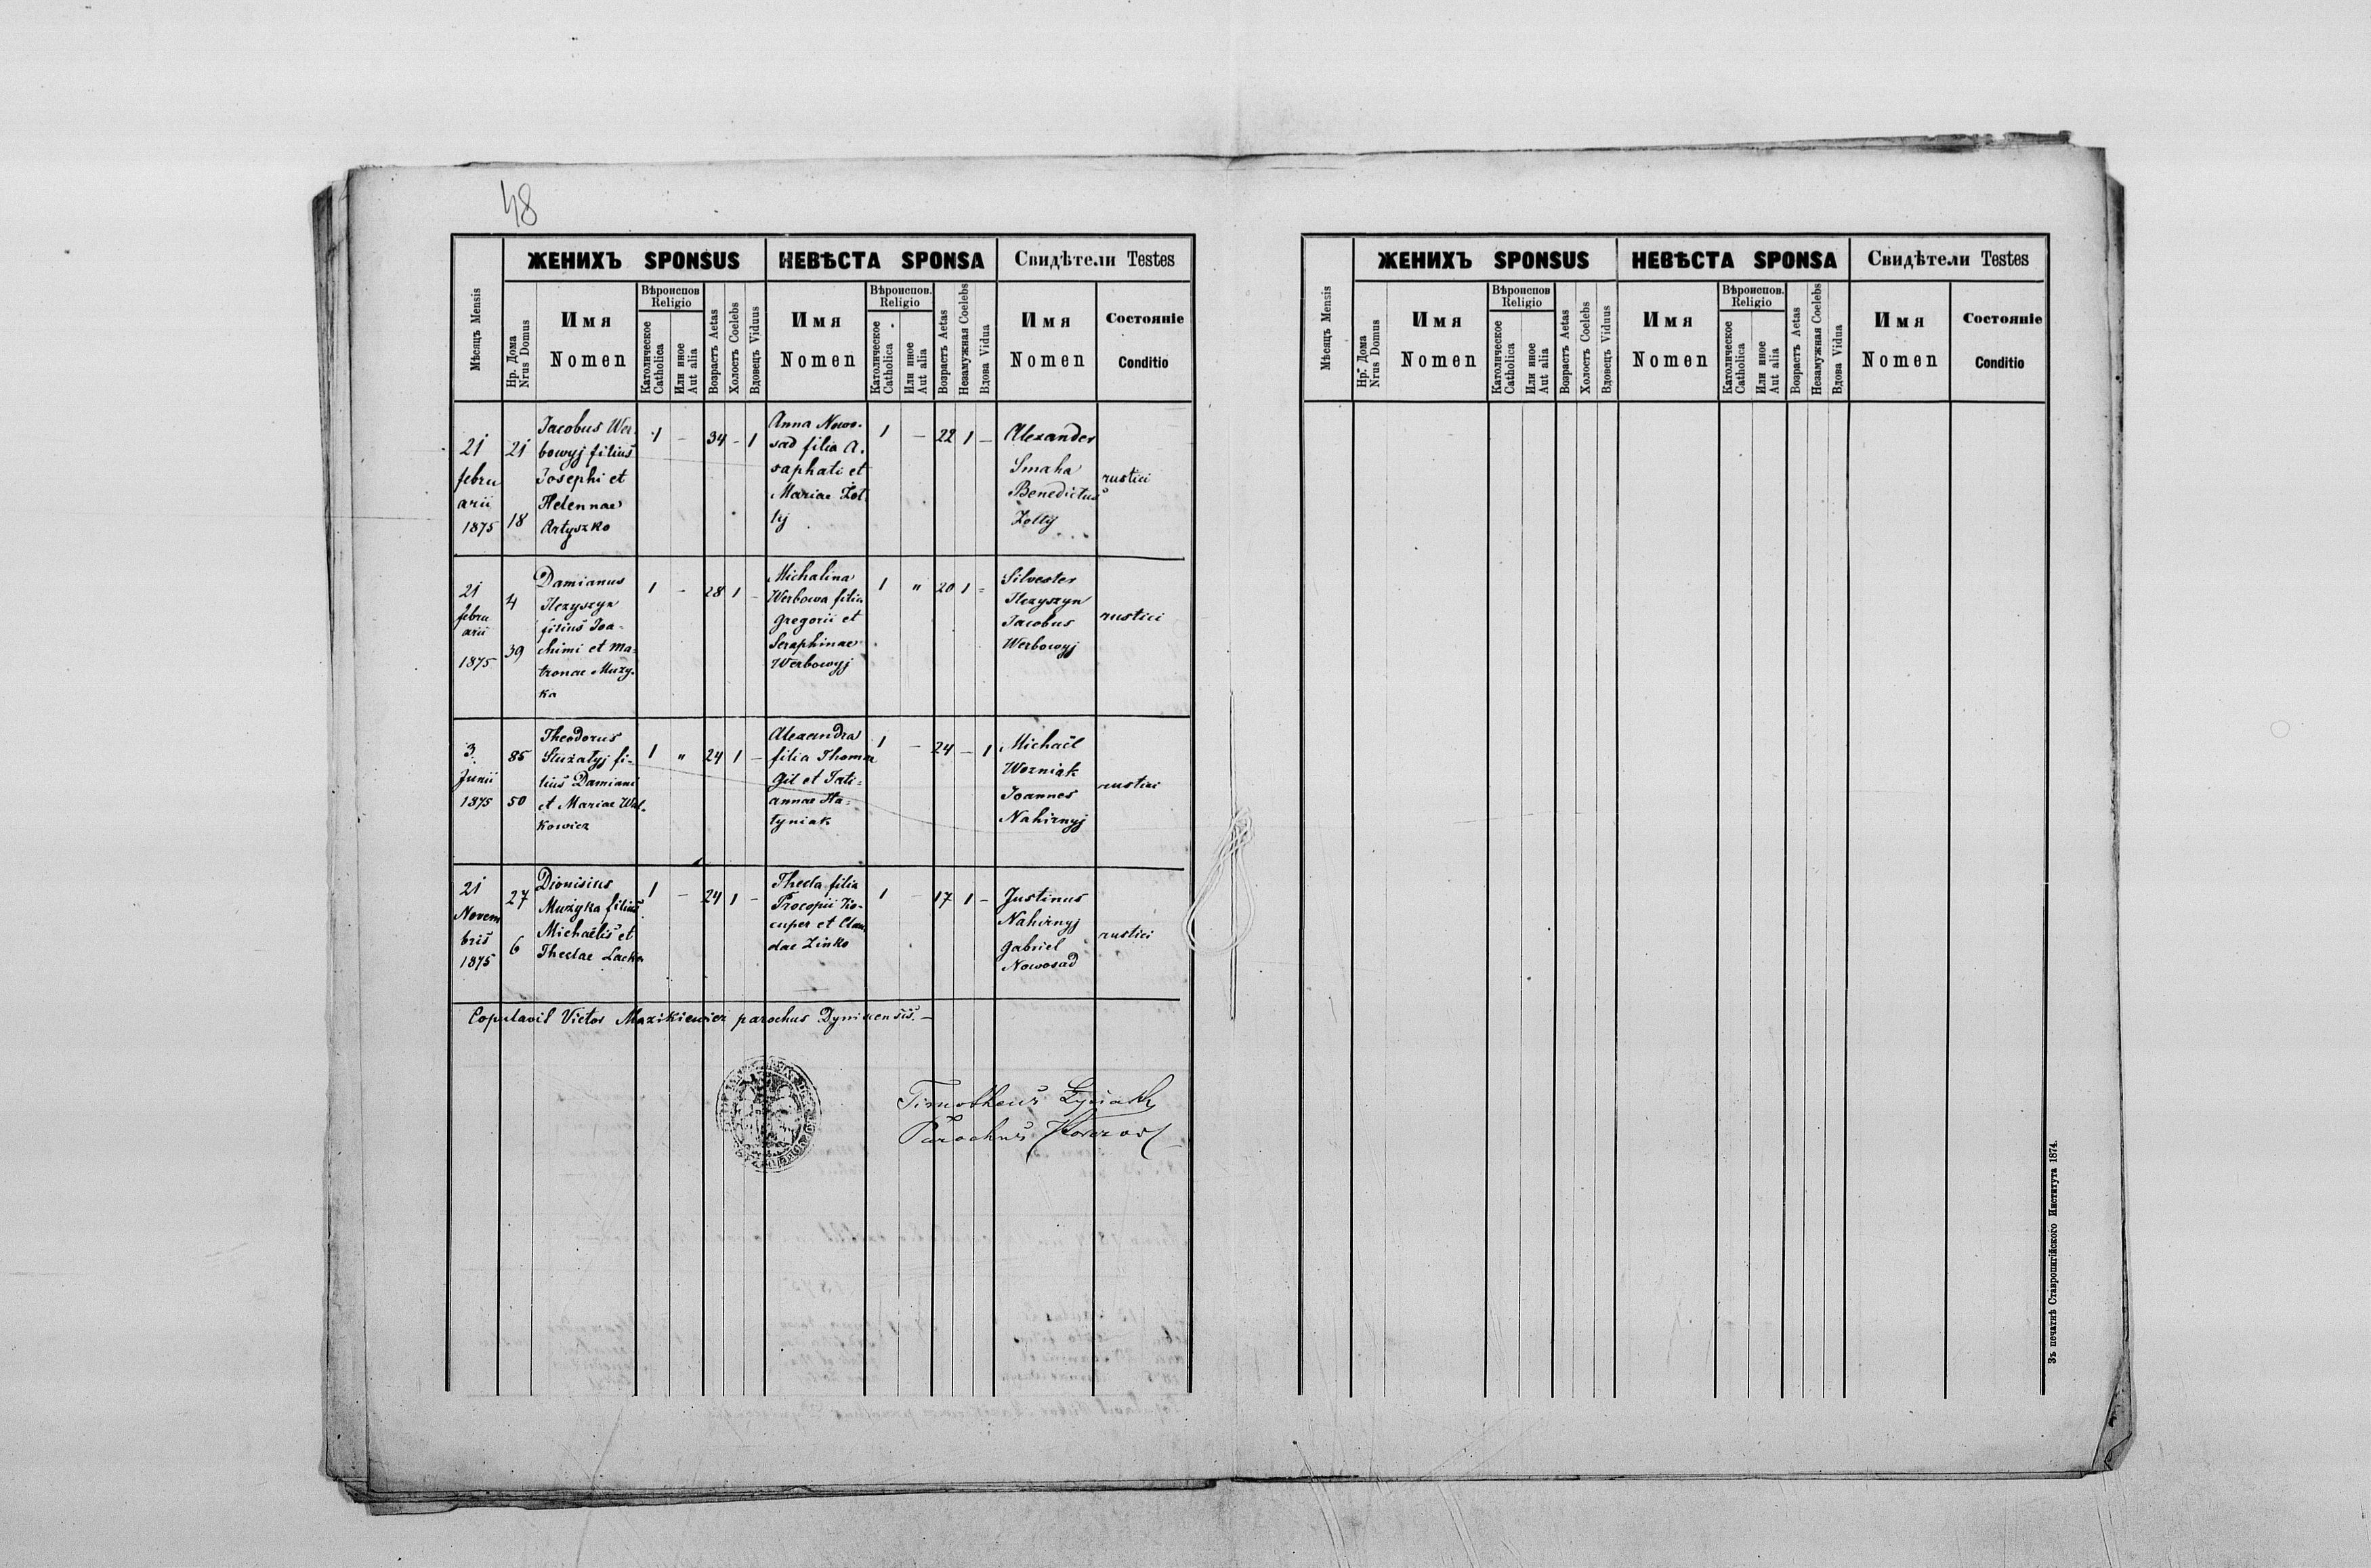 48
ЖЕНИХЪ SPONSUS НЕВѢСТА SPONSA Свидѣтели Testes
Мѣсяцъ Mensis
Нр. Дома
Nrus Domus
Имя
Nomen
Вѣроиспов
Religio
Католическое
Catholica
Или иное
Aut alia
Возрастъ Aetas
Холостъ Coelebs
Вдовецъ Viduus
Имя
Nomen
Вѣроиспов.
Religio
Католическое
Catholica
Или иное
Aut alia
Возрастъ Aetas
Незамужная Coelebs
Вдова Vidua
Имя
Nomen
Состоянiе
Conditio
21
febru
arii
1875
21
18
Jacobus Wer-
bowyj filius
Josephi et
Helennae
Artyszko
1 - 34 - 1
Anna Nowo-
sad filia A.
saphati et
Mariae Zol
tyj
1 - 22 1 -
Alexander
Smaha
Benedictus
Zoltyj
rustici
21
febru
arii
1875
4
39
Damianus
Ilczyszyn
filius Joa-
chimi et Ma-
tronae Muzy-
ka
1 - 28 1 -
Michalina
Werbowa filia
Gregorii et
Seraphinae
Werbowyj
1 " 20 1 -
Silvester
Ilczyszyn
Jacobus
Werbowyj
rustici
3
Junii
1875
85
50
Theodorus
Służatyj fi-
lius Damiani
et Mariae Wal-
kowicz
1 " 24 1 -
Alexandra
filia Thomae
Gil et Tati-
annae Ha-
tyniak
1 - 24 - 1
Michaël
Wozniak
Joannes
Nahirnyj
rustici
21
Novem
bris
1875
27
6
Dionisius
Muzyka filius
Michaëlis et
Theclae Lacka
1 - 24 1 -
Thecla filia
Procopii
et
Zinko
1 - 17 1 -
Justinus
Nahirnyj
Gabriel
Nowosad
rustici
Copulavit Victor Mazikiewicz parochus Dyniscensis. -
Timotheus
Parochus
ЖЕНИХЪ SPONSUS НЕВѢСТА SPONSA Свидѣтели Testes
Мѣсяцъ Mensis
Нр. Дома
Nrus Domus
Имя
Nomen
Вѣроиспов.
Religio
Католическое
Catholica
Или иное
Aut alia
Возрастъ Aetas
Холостъ Coelebs
Вдовецъ Viduus
Имя
Nomen
Вѣроиспов.
Religio
Католическое
Catholica
Или иное
Aut alia
Возрастъ Aetas
Незамужная Coelebs
Вдова Vidua
Имя
Nomen
Состоянiе
Conditio
Зъ печатнѣ Ставропигійского Института 1874.